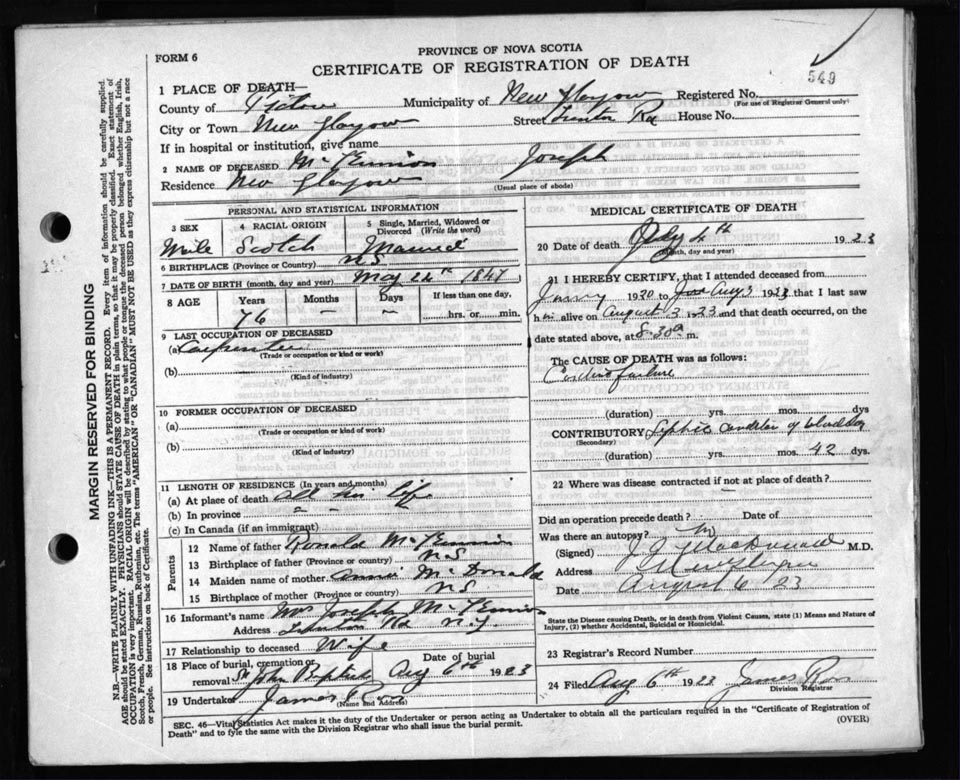 FORM 6
PROVINCE OF NOVA SCOTIA
CERTIFICATE OF REGISTRATION OF DEATH
549
MARGIN RESERVED FOR BINDING
N.B.—WRITE PLAINLY WITH UNFADING INK—THIS IS A PERMANENT RECORD. Every item of information should be carefully supplied.
AGE should be stated EXACTLY. PHYSICIANS should STATE CAUSE OF DEATH in plain terms, so that it may be properly classified. Exact statement of
OCCUPATION is very important. RACIAL ORIGIN will be described by stating to what people or tongue the deceased person belonged whether English, Irish,
Scotch, French, German, Russian, Ruthenian, etc. The terms "AMERICAN" OR "CANADIAN" MUST NOT BE USED as they express citizenship but not a race
or people. See instructions on back of Certificate.
1 PLACE OF DEATH—
County of Pictou Municipality of New Glasgow Registered No.
(For use of Registrar General only)
City or Town New Glasgow Street Trenton Rd House No.
If in hospital or institution, give name
2 NAME OF DECEASED Joseph
Residence New Glasgow
(Usual place of abode)
PERSONAL AND STATISTICAL INFORMATION
3 SEX 4 RACIAL ORIGIN 5 Single, Married, Widowed or Divorced (Write the word)
Scotch Married
6 BIRTHPLACE (Province or Country) N S
7 DATE OF BIRTH (month, day and year) May 1847
8 AGE Years Months Days If less than one day,
76 – – hrs. or min.
9 LAST OCCUPATION OF DECEASED
(a) Carpenter
(Trade or occupation or kind or work)
(b)
(Kind of industry)
10 FORMER OCCUPATION OF DECEASED
(a)
(Trade or occupation or kind or work)
(b)
(Kind of industry)
11 LENGTH OF RESIDENCE (In years and months)
(a) At place of death all his life
(b) In province – –
(c) In Canada (if an immigrant)
Parents
12 Name of father Ronald
13 Birthplace of father (Province or country) N S
14 Maiden name of mother Annie McDonald
15 Birthplace of mother (Province or country) N S
16 Informant's name Mrs Joseph
Address Trenton Rd N.G.
17 Relationship to deceased Wife
18 Place of burial, cremation or removal St John Baptist Date of burial Aug 6th 1923
19 Undertaker James Ross
(Name and Address)
MEDICAL CERTIFICATE OF DEATH
20 Date of death 4th 1923
(Month, day and year)
21 I HEREBY CERTIFY, that I attended deceased from
1920 to Aug 3 1923 that I last saw
him alive on August 3 1923 and that death occurred, on
the date stated above, at 8.30 a m.
The CAUSE OF DEATH was as follows:
failure
(duration) yrs. mos. dys
CONTRIBUTORY Septic condition of bladder
(Secondary)
(duration) yrs. mos. 42 dys.
22 Where was disease contracted if not at place of death?
Did an operation precede death? Date of
Was there an autopsy? no
(Signed) MacDonald M.D.
Address New Glasgow
Date August 6 23
State the Disease causing Death, or in death from Violent Causes, state (1) Means and Nature of
Injury, (2) whether Accidental, Suicidal or Homicidal.
23 Registrar's Record Number
24 Filed Aug 6th 1923 James Ross
Division Registrar
SEC. 46—Vital Statistics Act makes it the duty of the Undertaker or person acting as Undertaker to obtain all the particulars required in the "Certificate of Registration of
Death" and to fyle the same with the Division Registrar who shall issue the burial permit.
(OVER)